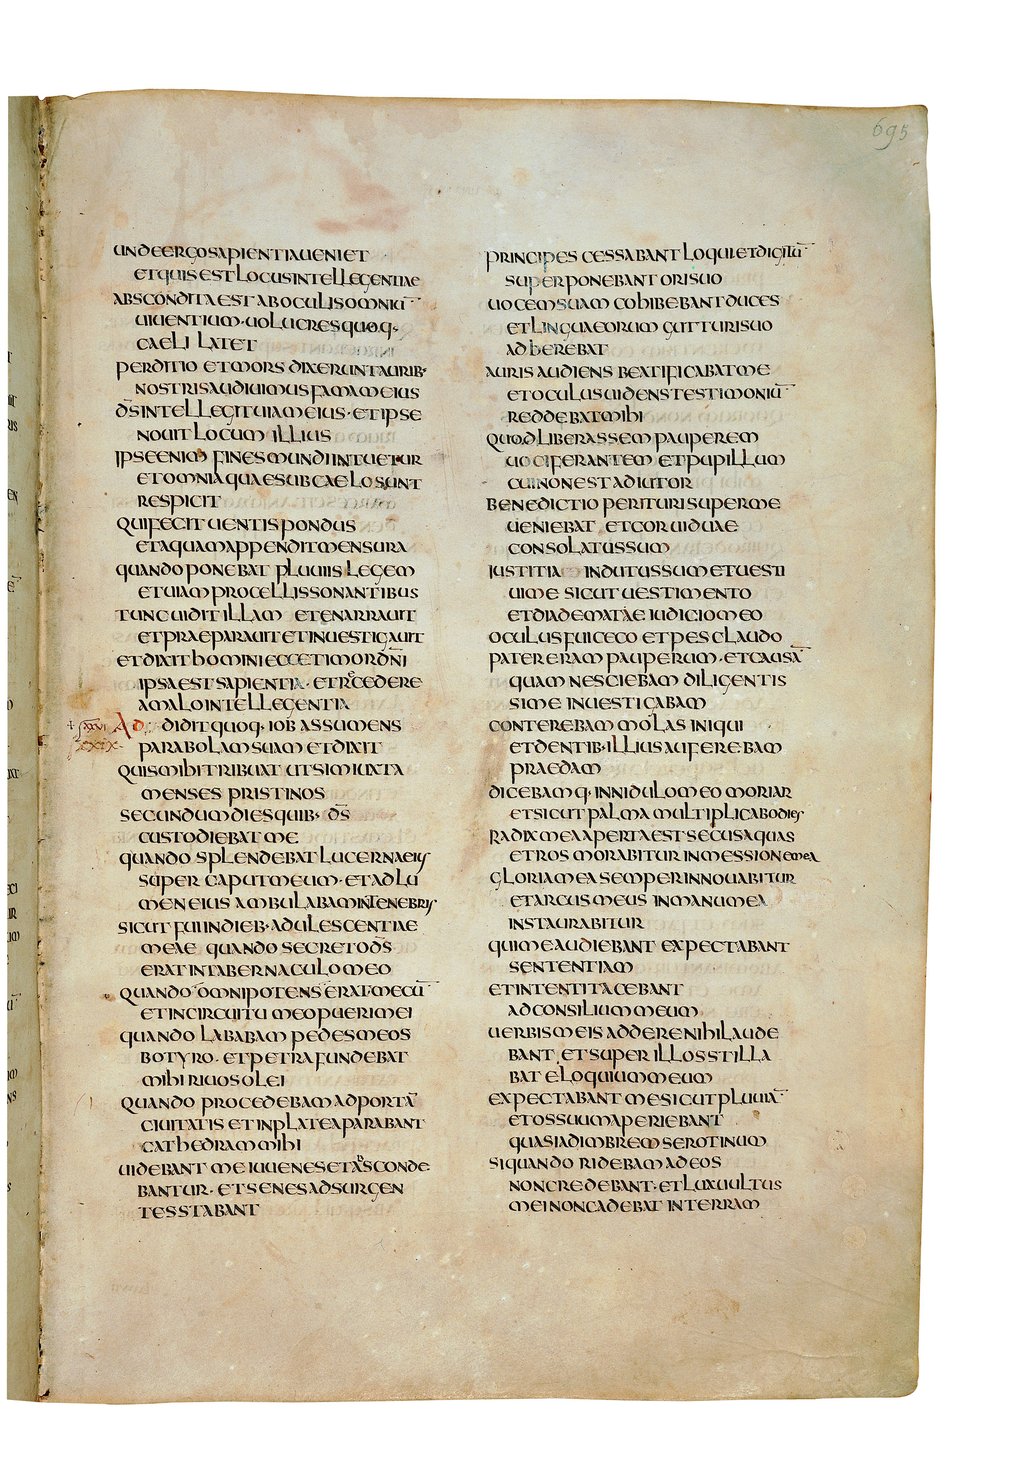 695
UNDE ERGO SAPIENTIA UENIET
ET QUIS EST LOCUS INTELLEGENTIAE
ABSCONDITA EST AB OCULIS OMNIŪ
UIUENTIUM · UOLUCRES QUOQ·
CAELI LATET
PERDITIO ET MORS DIXERUNT AURIB·
NOSTRIS AUDIUIMUS FAMAM EIUS
D̄S INTELLEGIT UIAM EIUS · ET IPSE
NOUIT LOCUM ILLIUS
IPSE ENIM FINES MUNDI INTUETUR
ET OMNIA QUAE SUB CAELO SUNT
RESPICIT
QUI FECIT UENTIS PONDUS
ET AQUAM APPENDIT MENSURA
QUANDO PONEBAT PLUUIIS LEGEM
ET UIAM PROCELLIS SONANTIBUS
TUNC UIDIT ILLAM ET ENARRAUIT
ET PRAEPARAUIT ET INUESTIGAUIT
ET DIXIT HOMINI ECCE TIMOR DN̄I
IPSA EST SAPIENTIA · ET RECEDERE
A MALO INTELLEGENTIA
ADDIDIT QUOQ· IOB ASSUMENS
XXIX PARABOLAM SUAM ET DIXIT
QUIS MIHI TRIBUAT UT SIM IUXTA
MENSES PRISTINOS
SECUNDUM DIES QUIB· D̄S
CUSTODIEBAT ME
QUANDO SPLENDEBAT LUCERNA EIUS
SUPER CAPUT MEUM · ET AD LU
MEN EIUS AMBULABAM IN TENEBRIS
SICUT FUI IN DIEB· ADULESCENTIAE
MEAE QUANDO SECRETO D̄S
ERAT IN TABERNACULO MEO
QUANDO OMNIPOTENS ERAT MECŪ
ET IN CIRCUITU MEO PUERI MEI
QUANDO LABABAM PEDES MEOS
BOTYRO · ET PETRA FUNDEBAT
MIHI RIUOS OLEI
QUANDO PROCEDEBAM AD PORTĀ
CIUITATIS ET IN PLATEA PARABANT
CATHEDRAM MIHI
UIDEBANT ME IUUENES ET ABSCONDE
BANTUR · ET SENES ADSURGEN
TES STABANT
PRINCIPES CESSABANT LOQUI ET DIGITŪ
SUPERPONEBANT ORI SUO
UOCEM SUAM COHIBEBANT DUCES
ET LINGUA EORUM GUTTURI SUO
ADHEREBAT
AURIS AUDIENS BEATIFICABAT ME
ET OCULUS UIDENS TESTIMONIŪ
REDDEBAT MIHI
QUOD LIBERASSEM PAUPEREM
UOCIFERANTEM ET PUPILLUM
CUI NON EST ADIUTOR
BENEDICTIO PERITURI SUPER ME
UENIEBAT ET COR UIDUAE
CONSOLATUS SUM
IUSTITIA INDUTUS SUM ET UESTI
UI ME SICUT UESTIMENTO
ET DIADEMATAE IUDICIO MEO
OCULUS FUI CECO ET PES CLAUDO
PATER ERAM PAUPERUM · ET CAUSĀ
QUAM NESCIEBAM DILIGENTIS
SIME INUESTIGABAM
CONTEREBAM MOLAS INIQUI
ET DENTIB· ILLIUS AUFEREBAM
PRAEDAM
DICEBAMQ· IN NIDULO MEO MORIAR
ET SICUT PALMA MULTIPLICABO DIES
RADIX MEA APERTA EST SECUS AQUAS
ET ROS MORABITUR IN MESSIONE MEA
GLORIA MEA SEMPER INNOUABITUR
ET ARCUS MEUS IN MANU MEA
INSTAURABITUR
QUI ME AUDIEBANT EXPECTABANT
SENTENTIAM
ET INTENTI TACEBANT
AD CONSILIUM MEUM
UERBIS MEIS ADDERE NIHIL AUDE
BANT ET SUPER ILLOS STILLA
BAT ELOQUIUM MEUM
EXPECTABANT ME SICUT PLUUIĀ
ET OS SUUM APERIEBANT
QUASI AD IMBREM SEROTINUM
SI QUANDO RIDEBAM AD EOS
NON CREDEBANT · ET LUX UULTUS
MEI NON CADEBAT IN TERRAM